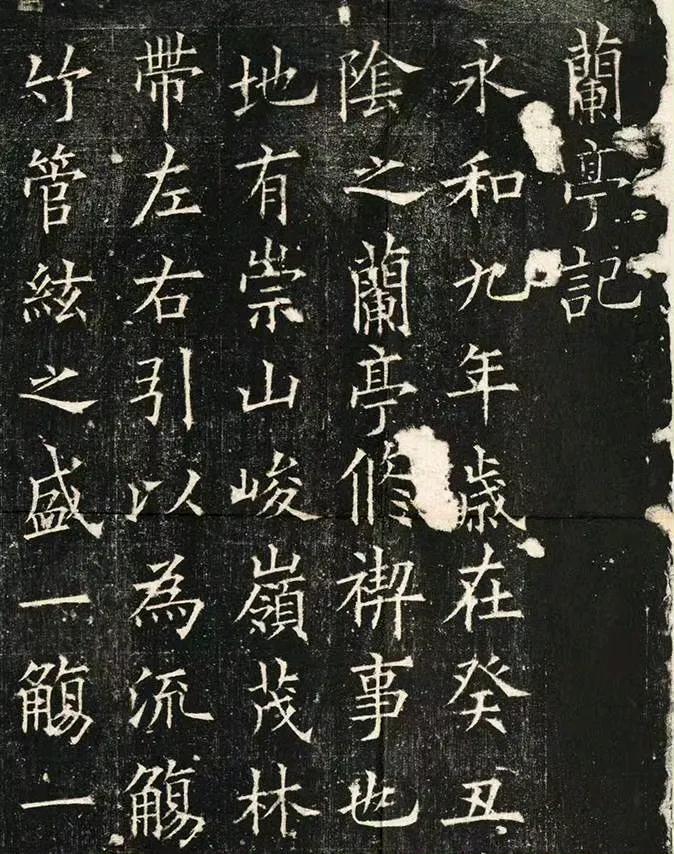 蘭亭記
永和九年歲在癸丑
陰之蘭亭修禊事也
地有崇山峻嶺茂林
帶左右引以為流觴
竹管絃之盛一觴一